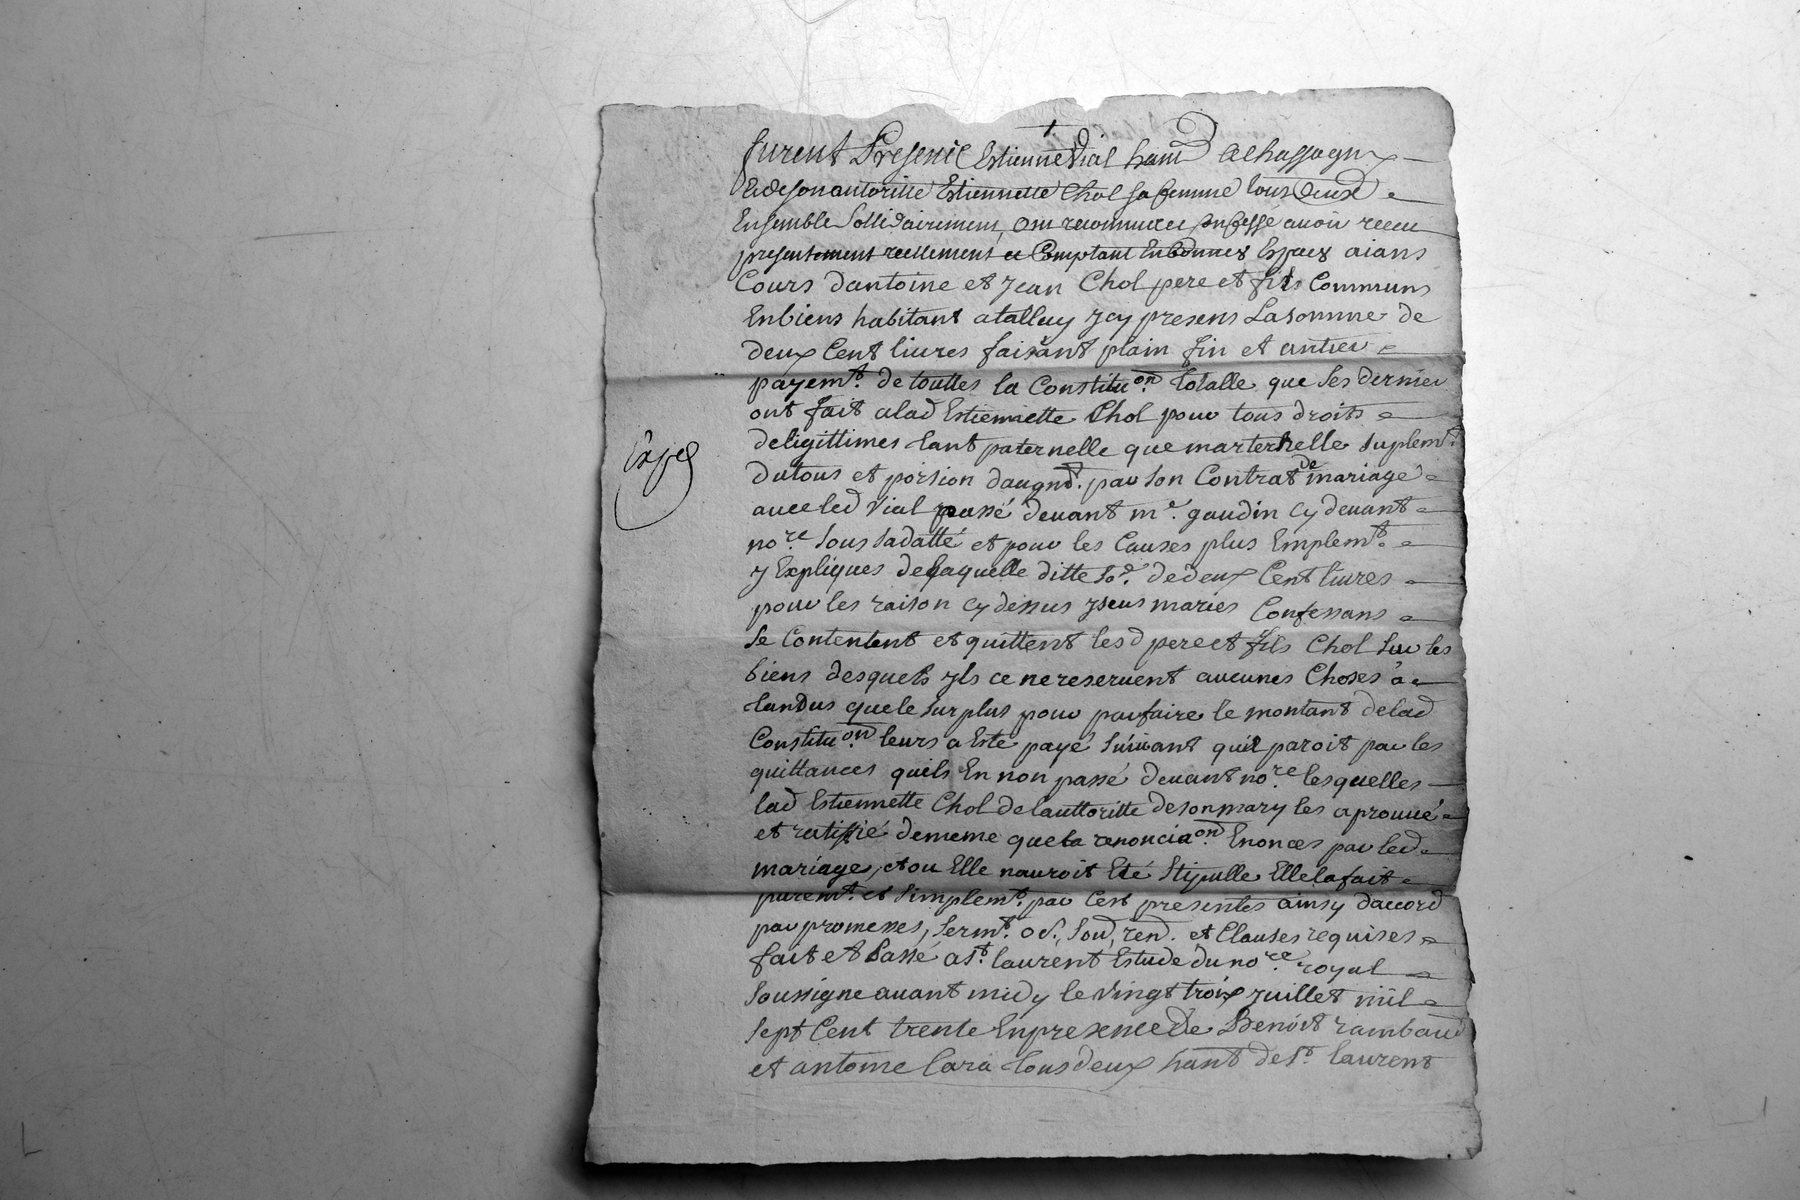 furent Presens Estienne Vial hant a Chassagny
et de son autoritté Estiennette Chol sa femme tous deux
Ensemble Sollidairement, ont reconnu et confessé avoir receu
presentement reellement et Comptant En bonnes Espaces aians
Cours dantoine et Jean Chol pere et fils Communs
En biens habitant a talluy ycy presens La somme de
deux Cent livres faisant plain fin et antier
payemt. de touttes la Constituon. totalle que Ses dernier
ont fait a lad Estiennette Chol pour tous droits
deligittimes tant paternelle que marternelle suplemt.
Dutous et porsion daugnt. par son Contrat de mariage
avec led Vial passé devant me. gaudin cy devant
nore. sous sadatté et pour les Causes plus Emplemt.
y Expliques de Laquelle ditte so.e de deux Cent livres
pour les raison cy dessus yseus mariés Confessans
se Contentent et quittent lesd pere et fils Chol sur les
biens desquels yls ce ne reservent aucunes Choses à
tandus que le surplus pour parfaire le montant de lad
Constituon. leurs a Este payé suivant quil paroit par les
quittances quils En non passé devant nore lesquelles
lad Estiennette Chol de lauttoritte de son mary les a prouvé
et ratifié de meme que la renonciaon. Enonces par led
mariage, et ou Elle nauroit Eté stipulle Elle la fait
puremt. et simplemt. par Cest presentes ainsy daccord
par promesses, sermt. od., soud, rend. et Clauses requises
fait et Passé a St. laurent Estude du nore. royal
soussigne avant midy le vingt troix juillet mil
sept Cent trente En presence de Benoit rambaud
et antoine Cara tous deux hant de St. laurent
Exped